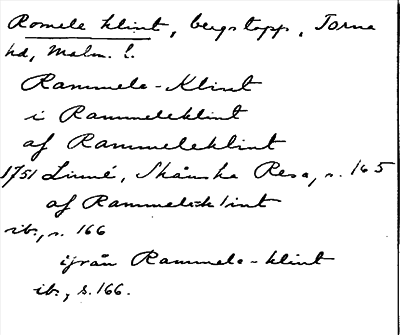 Romele klint, bergstopp, Torna
hd, Malm. l.
Rammele-Klint
i Rammeleklint
af Rammeleklint
1751 Linné, Skånska Resa, s. 165
af Rammele-klint
ib., s. 166
ifrån Rammele-klint
ib., s. 166.